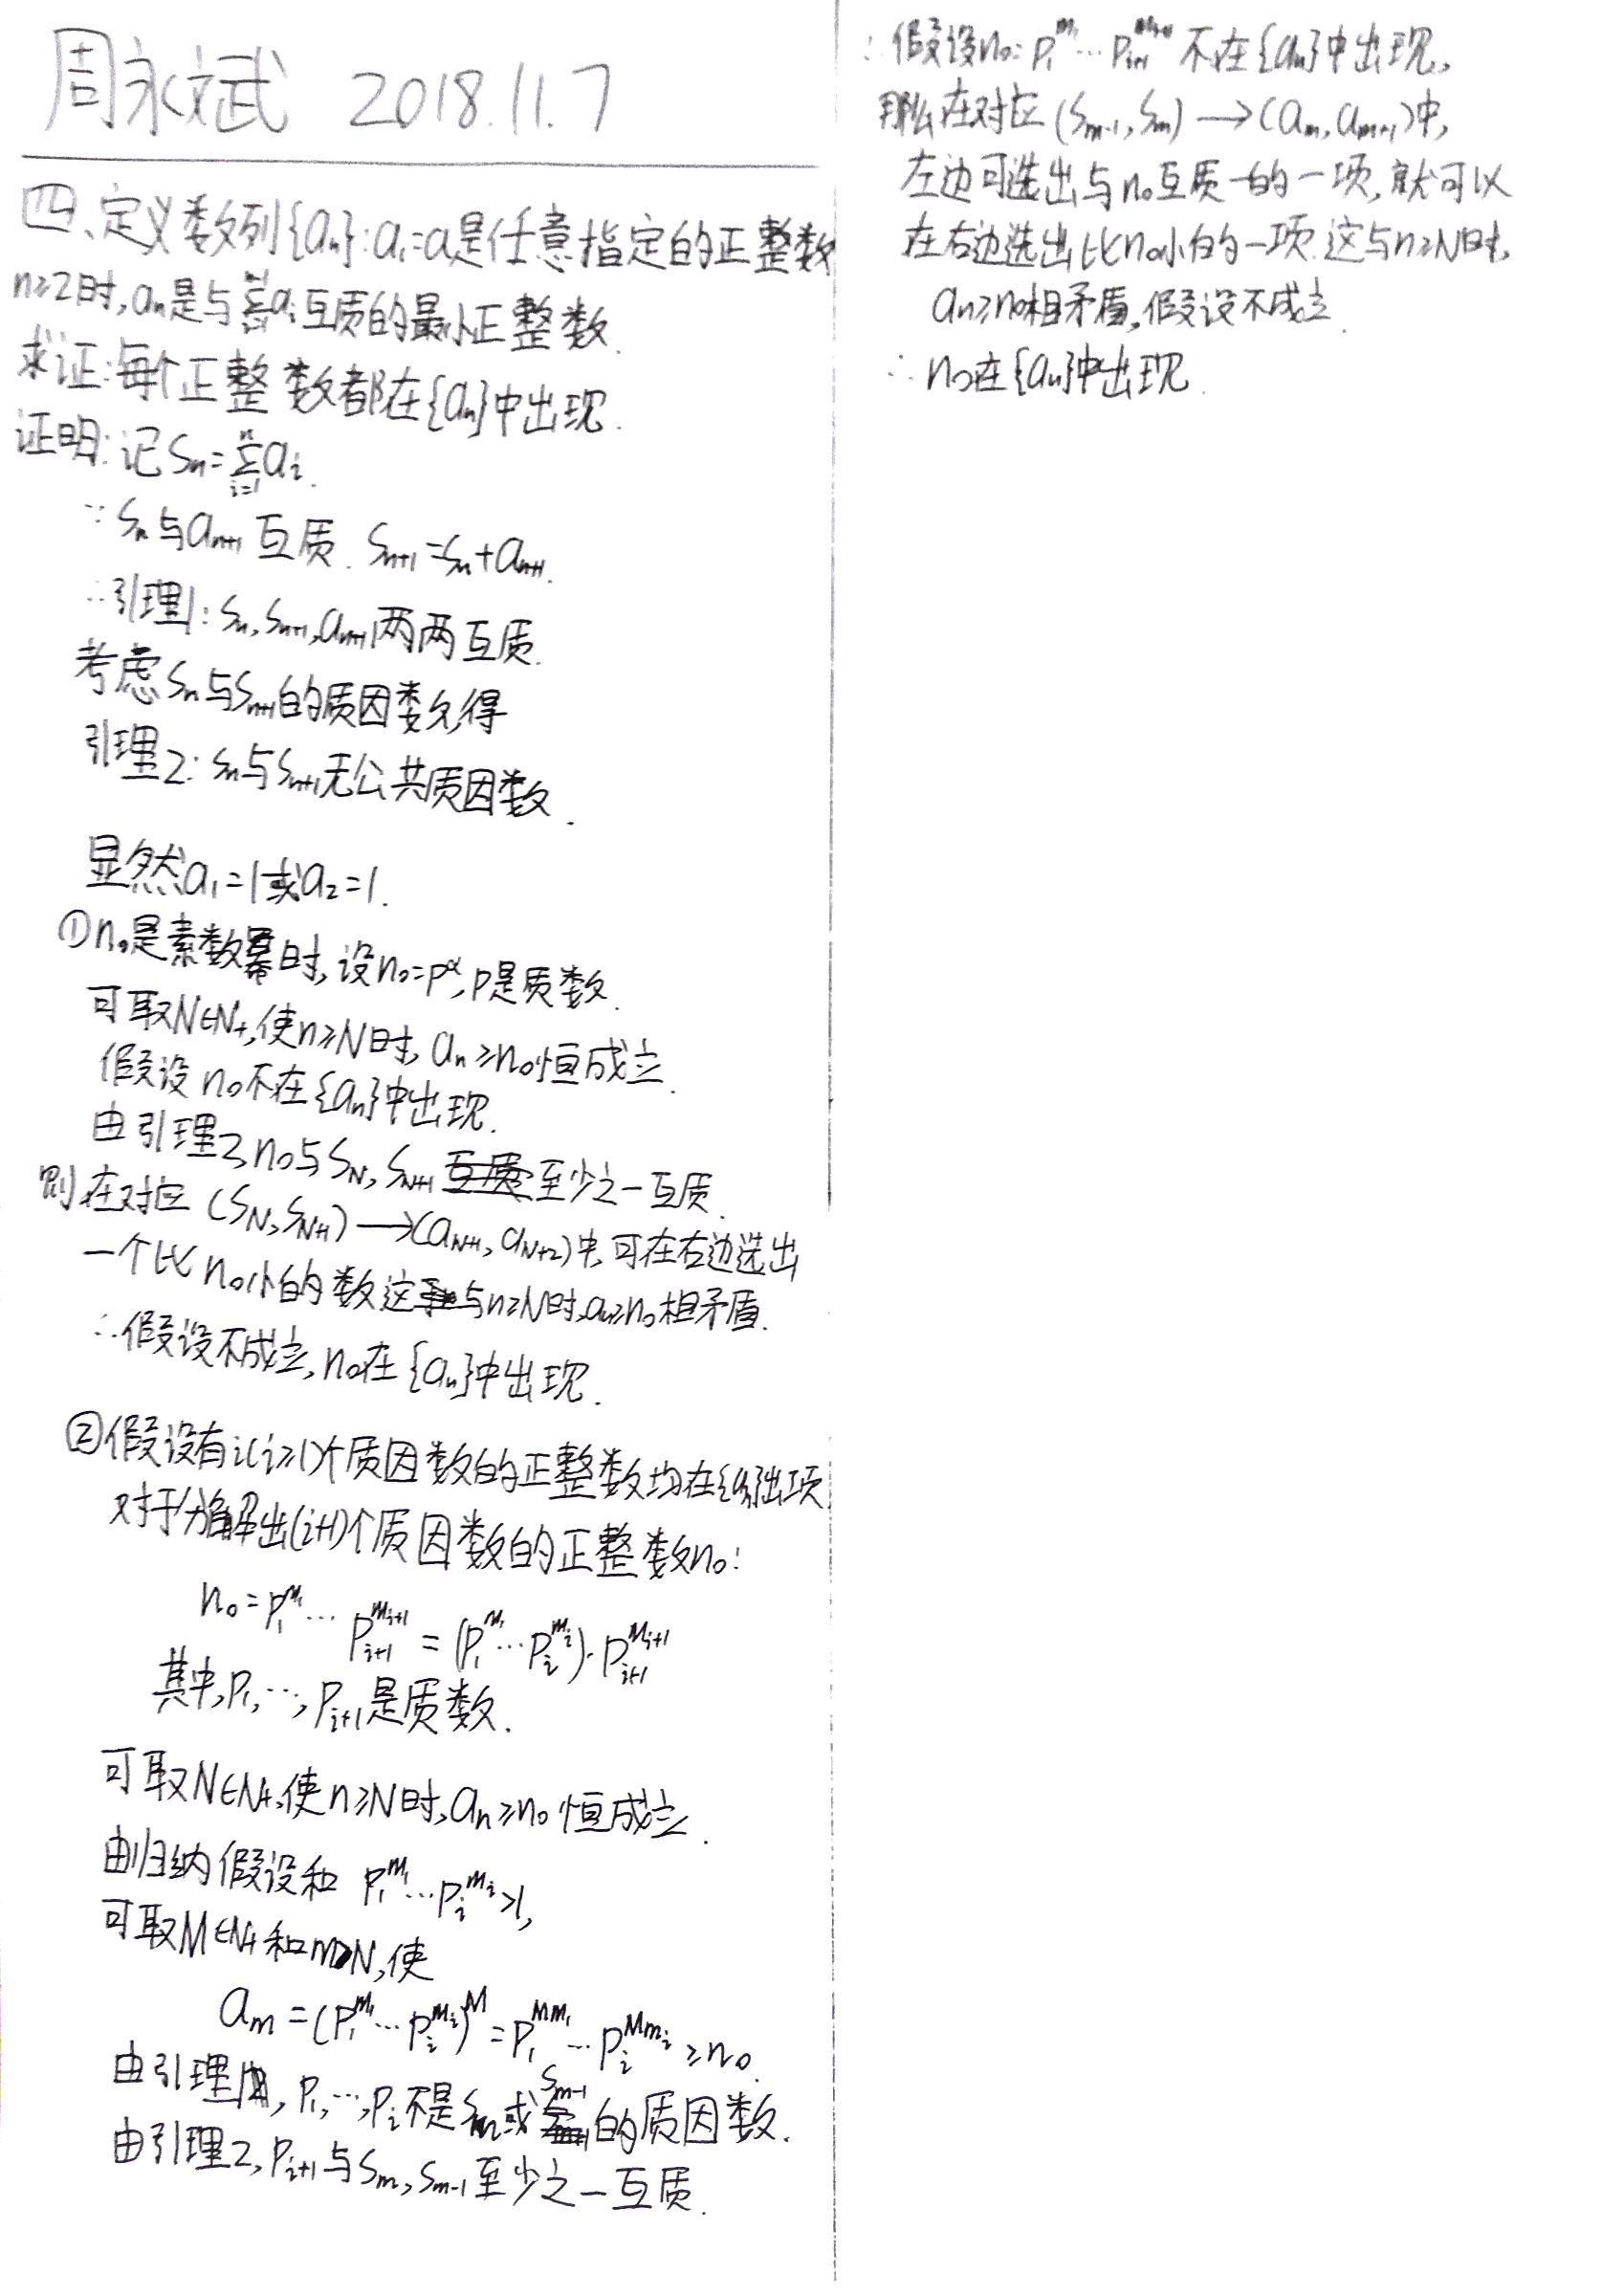 周永斌 2018.11.7
四、定义数列{aₙ}:a₁=a是任意指定的正整数
n≥2时,aₙ是与∑aᵢ互质的最小正整数.
求证:每个正整数都在{aₙ}中出现.
证明:记Sₙ=∑ᵢ₌₁ⁿaᵢ.
∵Sₙ与aₙ₊₁互质.Sₙ₊₁=Sₙ+aₙ₊₁.
∴引理1:Sₙ,Sₙ₊₁,aₙ₊₁两两互质.
考虑Sₙ与Sₙ₊₁的质因数,得
引理2:Sₙ与Sₙ₊₁无公共质因数.
显然a₁=1或a₂=1.
①n₀是素数幂时,设n₀=p^α,p是质数.
可取N∈N₊,使n≥N时,aₙ≥n₀恒成立.
假设n₀不在{aₙ}中出现.
由引理2,n₀与S_N,S_{N+1}至少之一互质.
则在对应(S_N,S_{N+1})→(a_{N+1},a_{N+2})中,可在右边选出
一个比n₀小的数这与n≥N时,aₙ≥n₀相矛盾.
∴假设不成立,n₀在{aₙ}中出现.
②假设有i(i≥1)个质因数的正整数均在{aₙ}出项.
对于分解出(i+1)个质因数的正整数n₀:
n₀=p₁^{m₁}…p_{i+1}^{m_{i+1}}=(p₁^{m₁}…p_i^{m_i})·p_{i+1}^{m_{i+1}}
其中,p₁,…,p_{i+1}是质数.
可取N∈N₊,使n≥N时,aₙ≥n₀恒成立.
由归纳假设和 p₁^{m₁}…p_i^{m_i}>1,
可取M∈N₊和m>N,使
a_m=(p₁^{m₁}…p_i^{m_i})^M=p₁^{Mm₁}…p_i^{Mm_i}≥n₀.
由引理1,p₁,…,p_i不是S_m或S_{m-1}的质因数.
由引理2,p_{i+1}与S_m,S_{m-1}至少之一互质.
∴假设n₀=p₁^{m₁}…p_{i+1}^{m_{i+1}}不在{aₙ}中出现,
那么在对应(S_{m-1},S_m)→(a_m,a_{m+1})中,
左边可选出与n₀互质的一项,就可以
在右边选出比n₀小的一项.这与n≥N时,
aₙ≥n₀相矛盾,假设不成立.
∴n₀在{aₙ}中出现.